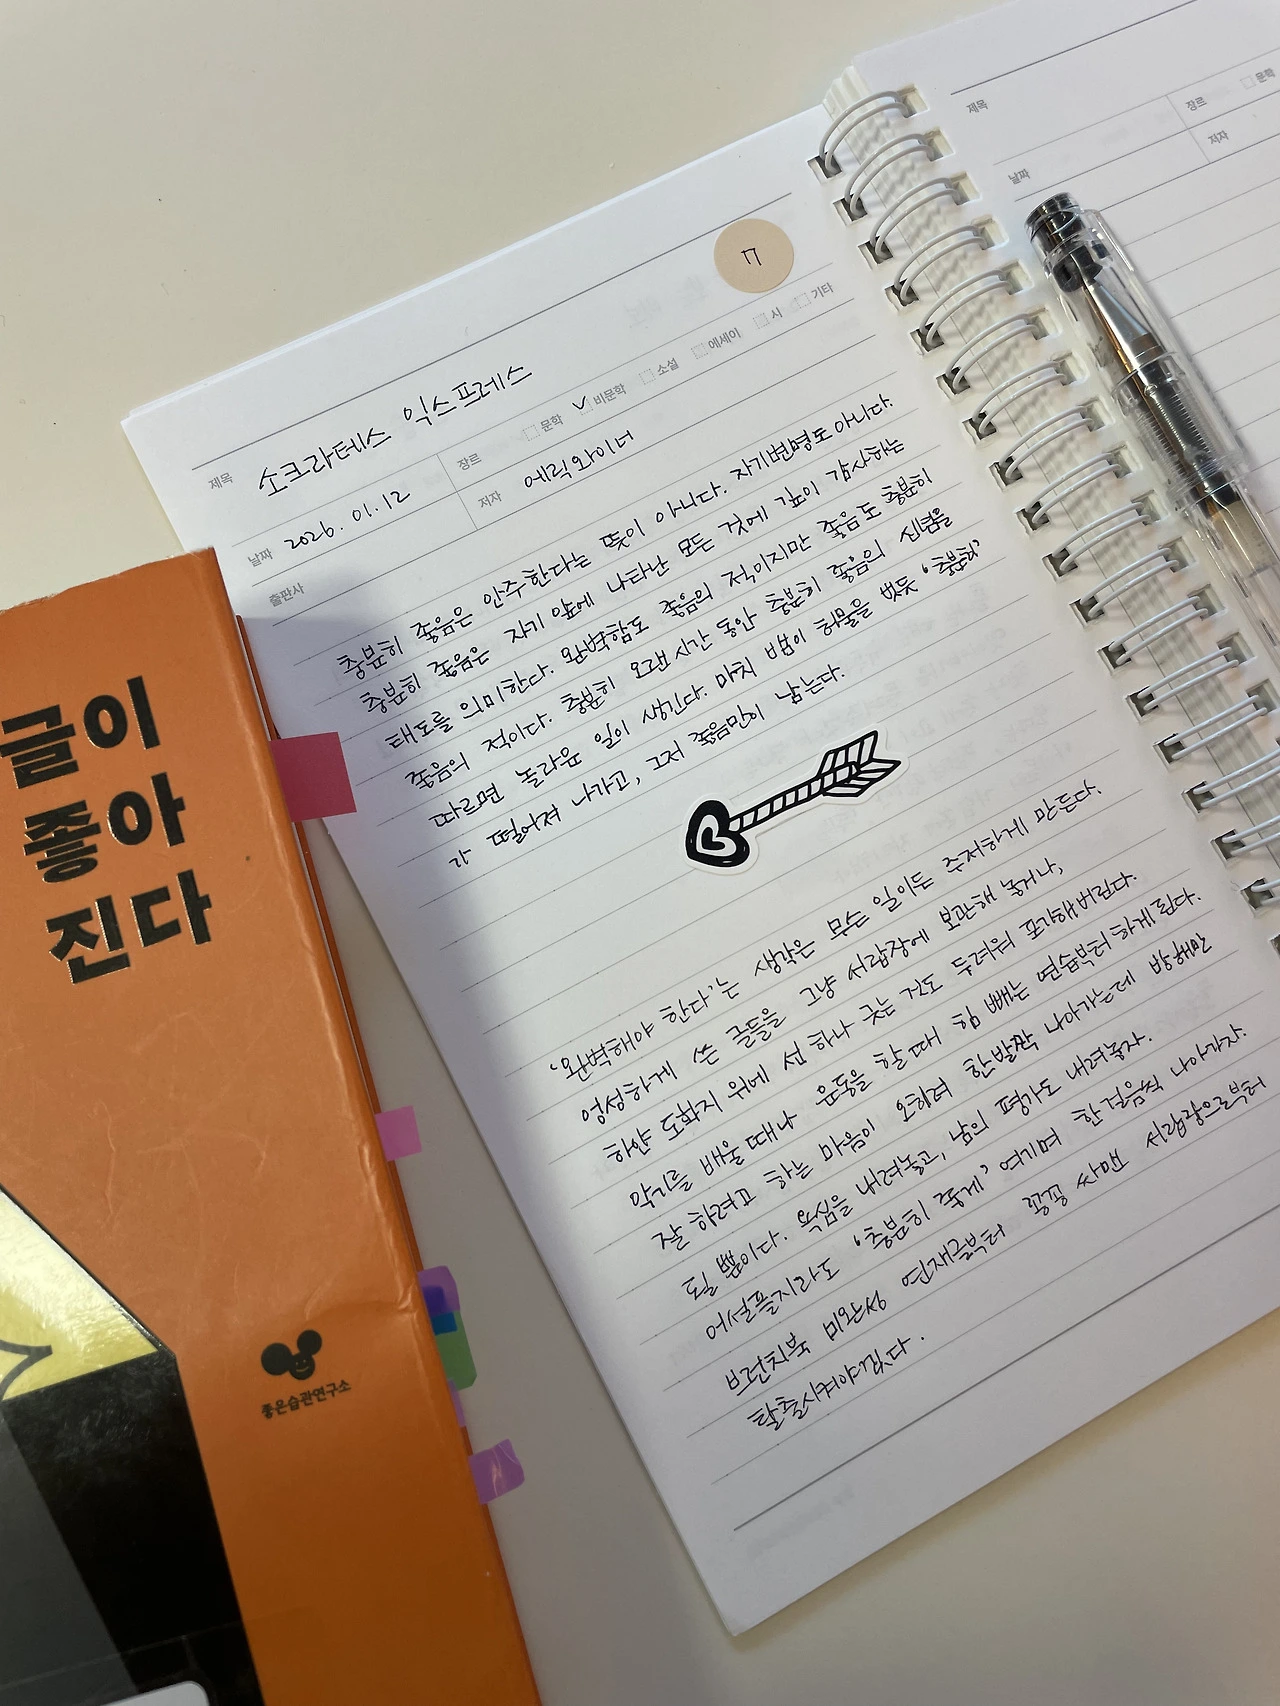 ㄲ
제목 소크라테스 익스프레스
장르 문학 ✓ 비문학 소설 에세이 시 기타
날짜 2026. 01. 12
저자 에릭 와이너
출판사
충분히 좋음은 안주한다는 뜻이 아니다. 자기변명도 아니다.
충분히 좋음은 자기 앞에 나타난 모든 것에 깊이 감사하는
태도를 의미한다. 완벽함도 좋음의 적이지만 좋음도 충분히
좋음의 적이다. 충분히 오랜 시간 동안 충분히 좋음의 신념을
따르면 놀라운 일이 생긴다. 마치 뱀이 허물을 벗듯 '충분히'
가 떨어져 나가고, 그저 좋음만이 남는다.
'완벽해야 한다'는 생각은 무슨 일이든 주저하게 만든다.
엉성하게 쓴 글들을 그냥 서랍장에 보관해 놓거나,
하얀 도화지 위에 선 하나 긋는 것도 두려워 포기해버린다.
악기를 배울 때나 운동을 할 때 힘 빼는 연습부터 하게 된다.
잘 하려고 하는 마음이 오히려 한발짝 나아가는데 방해만
될 뿐이다. 욕심을 내려놓고, 남의 평가도 내려놓자.
어설플지라도 '충분히 좋게' 여기며 한 걸음씩 나아가자.
브런치북 미완성 연재글부터 꽁꽁 싸맨 서랍장으로부터
탈출시켜야겠다.
제목
장르 문학
날짜
저자
글이
좋아
진다
좋은습관연구소